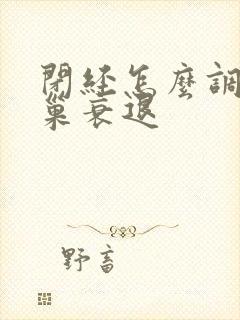 閉經怎麼調
巢衰退
野畜